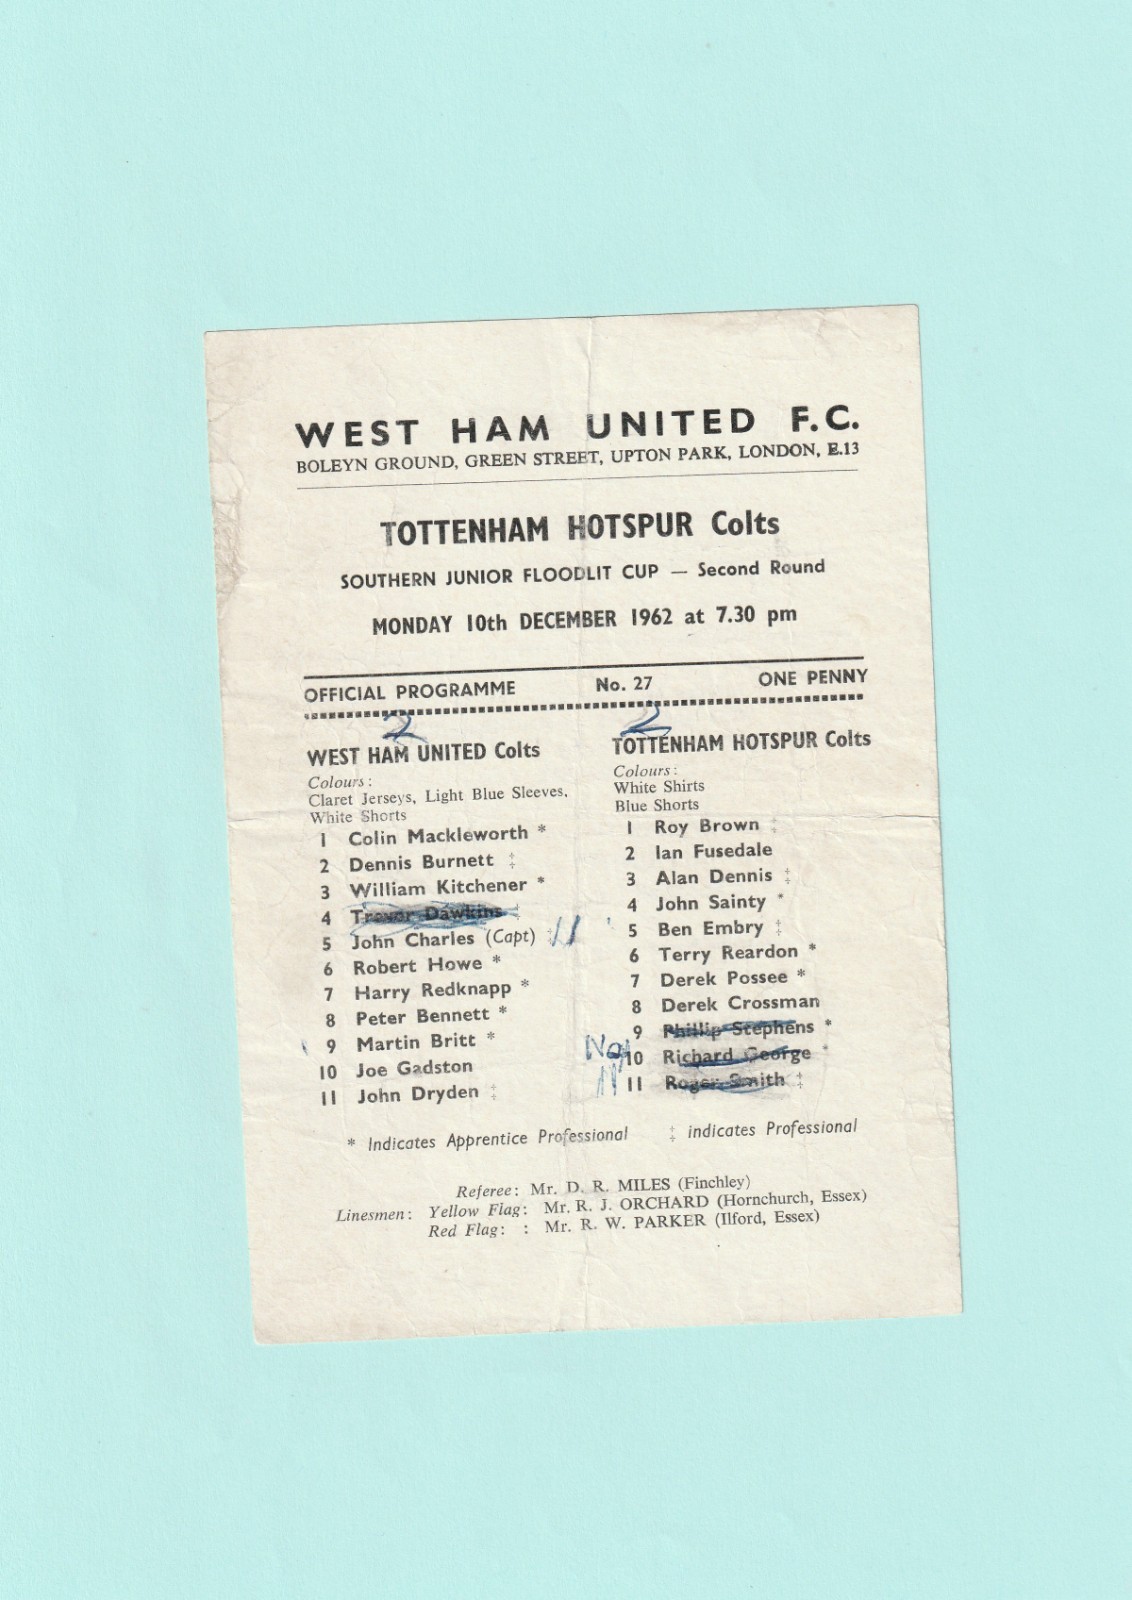 WEST HAM UNITED F.C.
BOLEYN GROUND, GREEN STREET, UPTON PARK, LONDON, E.13
TOTTENHAM HOTSPUR Colts
SOUTHERN JUNIOR FLOODLIT CUP — Second Round
MONDAY 10th DECEMBER 1962 at 7.30 pm
OFFICIAL PROGRAMME No. 27 ONE PENNY
2
WEST HAM UNITED Colts
Colours:
Claret Jerseys, Light Blue Sleeves,
White Shorts
1 Colin Mackleworth *
2 Dennis Burnett ‡
3 William Kitchener *
4 Trevor Dawkins ‡
5 John Charles (Capt) ‡ 11
6 Robert Howe *
7 Harry Redknapp *
8 Peter Bennett *
9 Martin Britt *
10 Joe Gadston
11 John Dryden ‡
2
TOTTENHAM HOTSPUR Colts
Colours:
White Shirts
Blue Shorts
1 Roy Brown ‡
2 Ian Fusedale
3 Alan Dennis ‡
4 John Sainty *
5 Ben Embry ‡
6 Terry Reardon *
7 Derek Possee *
8 Derek Crossman
9 Phillip Stephens *
10 Richard George *
11 11 Roger Smith ‡
* Indicates Apprentice Professional ‡ indicates Professional
Referee: Mr. D. R. MILES (Finchley)
Linesmen: Yellow Flag: Mr. R. J. ORCHARD (Hornchurch, Essex)
Red Flag: : Mr. R. W. PARKER (Ilford, Essex)